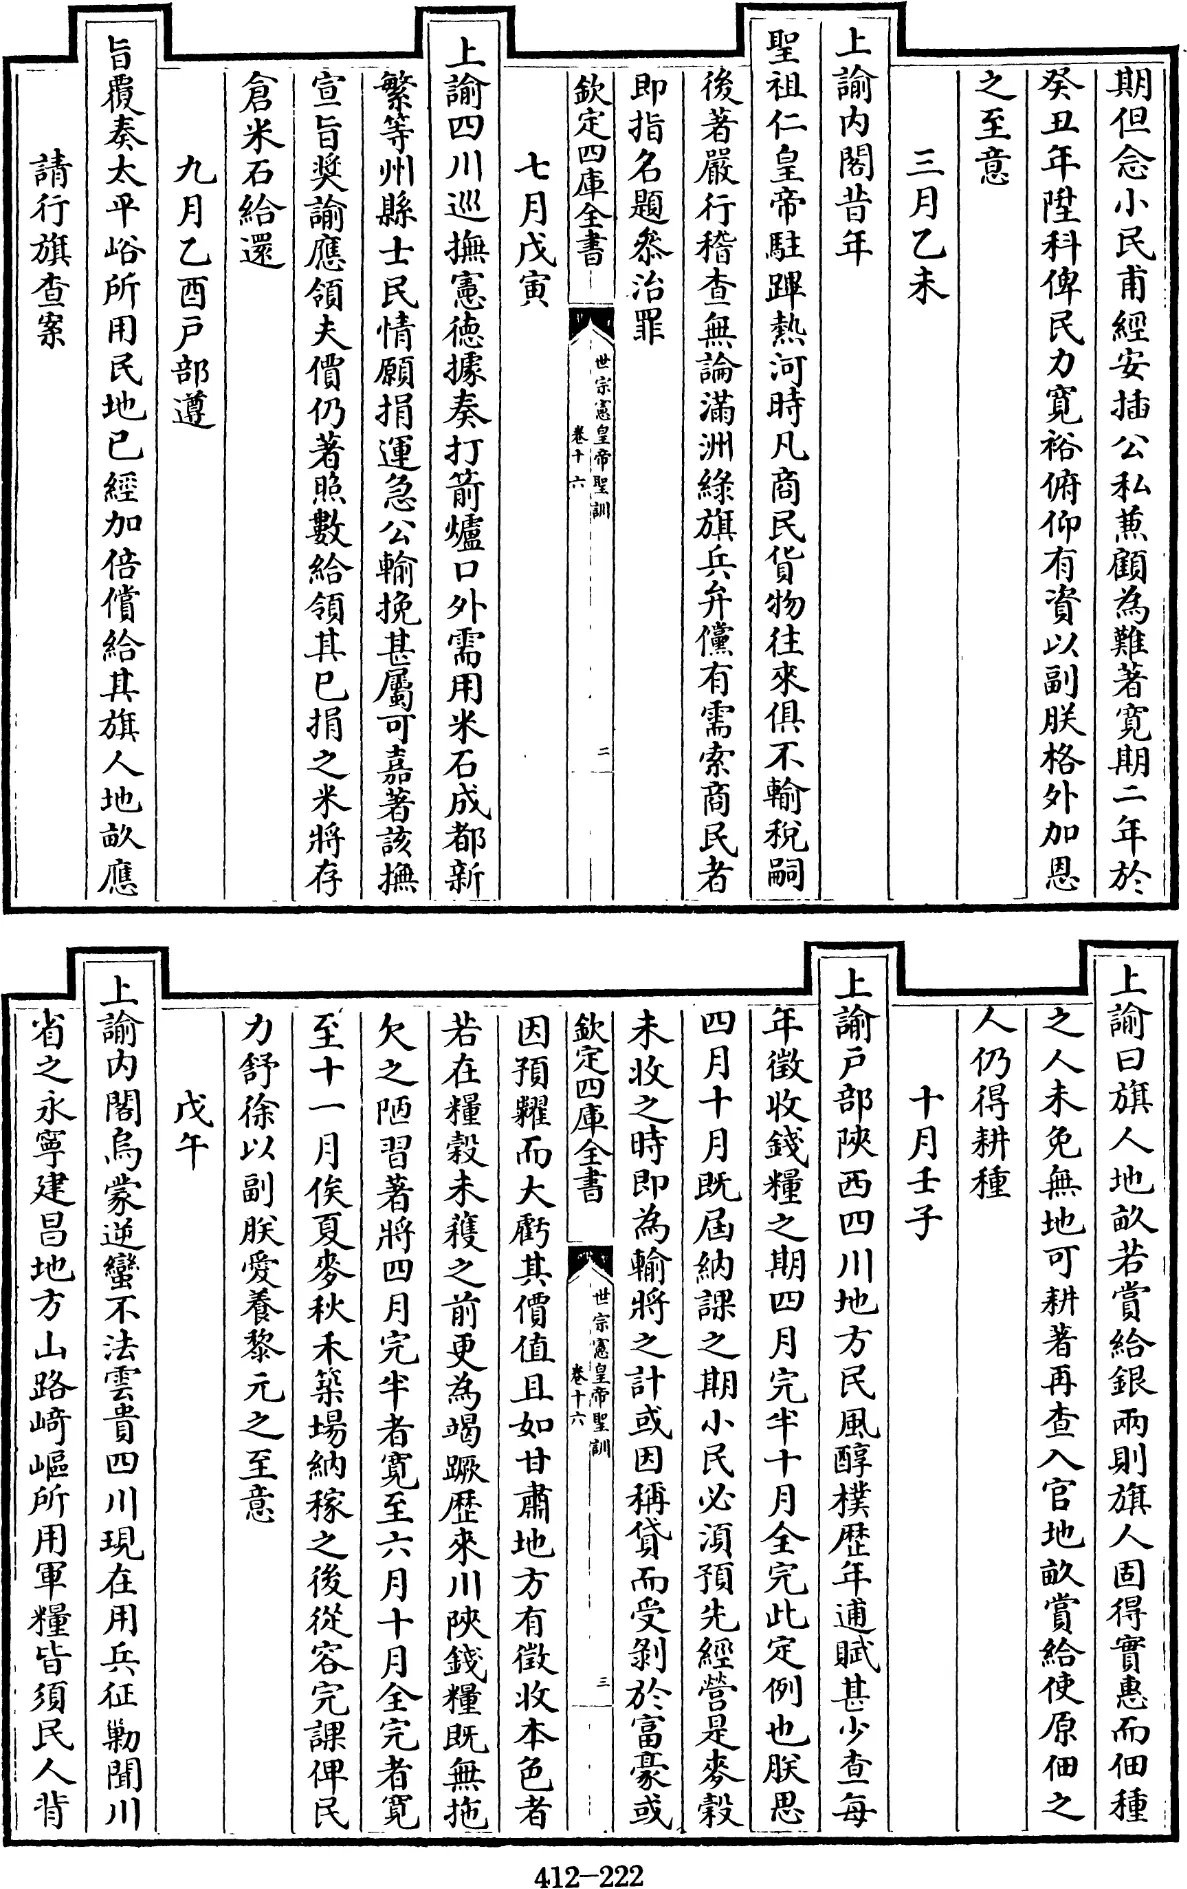 期但念小民甫經安插公私兼顧為難著寛期二年於
癸丑年陞科俾民力寛裕俯仰有資以副朕格外加恩
之至意
三月乙未
上諭内閣昔年
聖祖仁皇帝駐蹕熱河時凡商民貨物往來俱不輸稅嗣
後著嚴行稽查無論滿洲綠旗兵弁儻有需索商民者
即指名題叅治罪
欽定四庫全書
世宗憲皇帝聖訓
卷十六
二
七月戊寅
上諭四川巡撫憲德據奏打箭爐口外需用米石成都新
繁等州縣士民情願捐運急公輸挽甚屬可嘉著該撫
宣旨奬諭應領夫價仍著照數給領其已捐之米將存
倉米石給還
九月乙酉戸部遵
旨覆奏太平峪所用民地已經加倍償給其旗人地畝應
請行旗查案
上諭曰旗人地畝若賞給銀兩則旗人固得實惠而佃種
之人未免無地可耕著再查入官地畝賞給使原佃之
人仍得耕種
十月壬子
上諭戸部陝西四川地方民風醇樸歴年逋賦甚少查每
年徵收錢糧之期四月完半十月全完此定例也朕思
四月十月既届納課之期小民必須預先經營是麥穀
未收之時即為輸將之計或因稱貸而受剝於富豪或
欽定四庫全書
世宗憲皇帝聖訓
卷十六
三
因預糶而大虧其價值且如甘肅地方有徵收本色者
若在糧穀未穫之前更為竭蹶歴來川陝錢糧既無拖
欠之陋習著將四月完半者寛至六月十月全完者寛
至十一月俟夏麥秋禾築場納稼之後從容完課俾民
力舒徐以副朕愛養黎元之至意
戊午
上諭内閣烏蒙逆蠻不法雲貴四川現在用兵征勦聞川
省之永寧建昌地方山路崎嶇所用軍糧皆須民人背
412-222